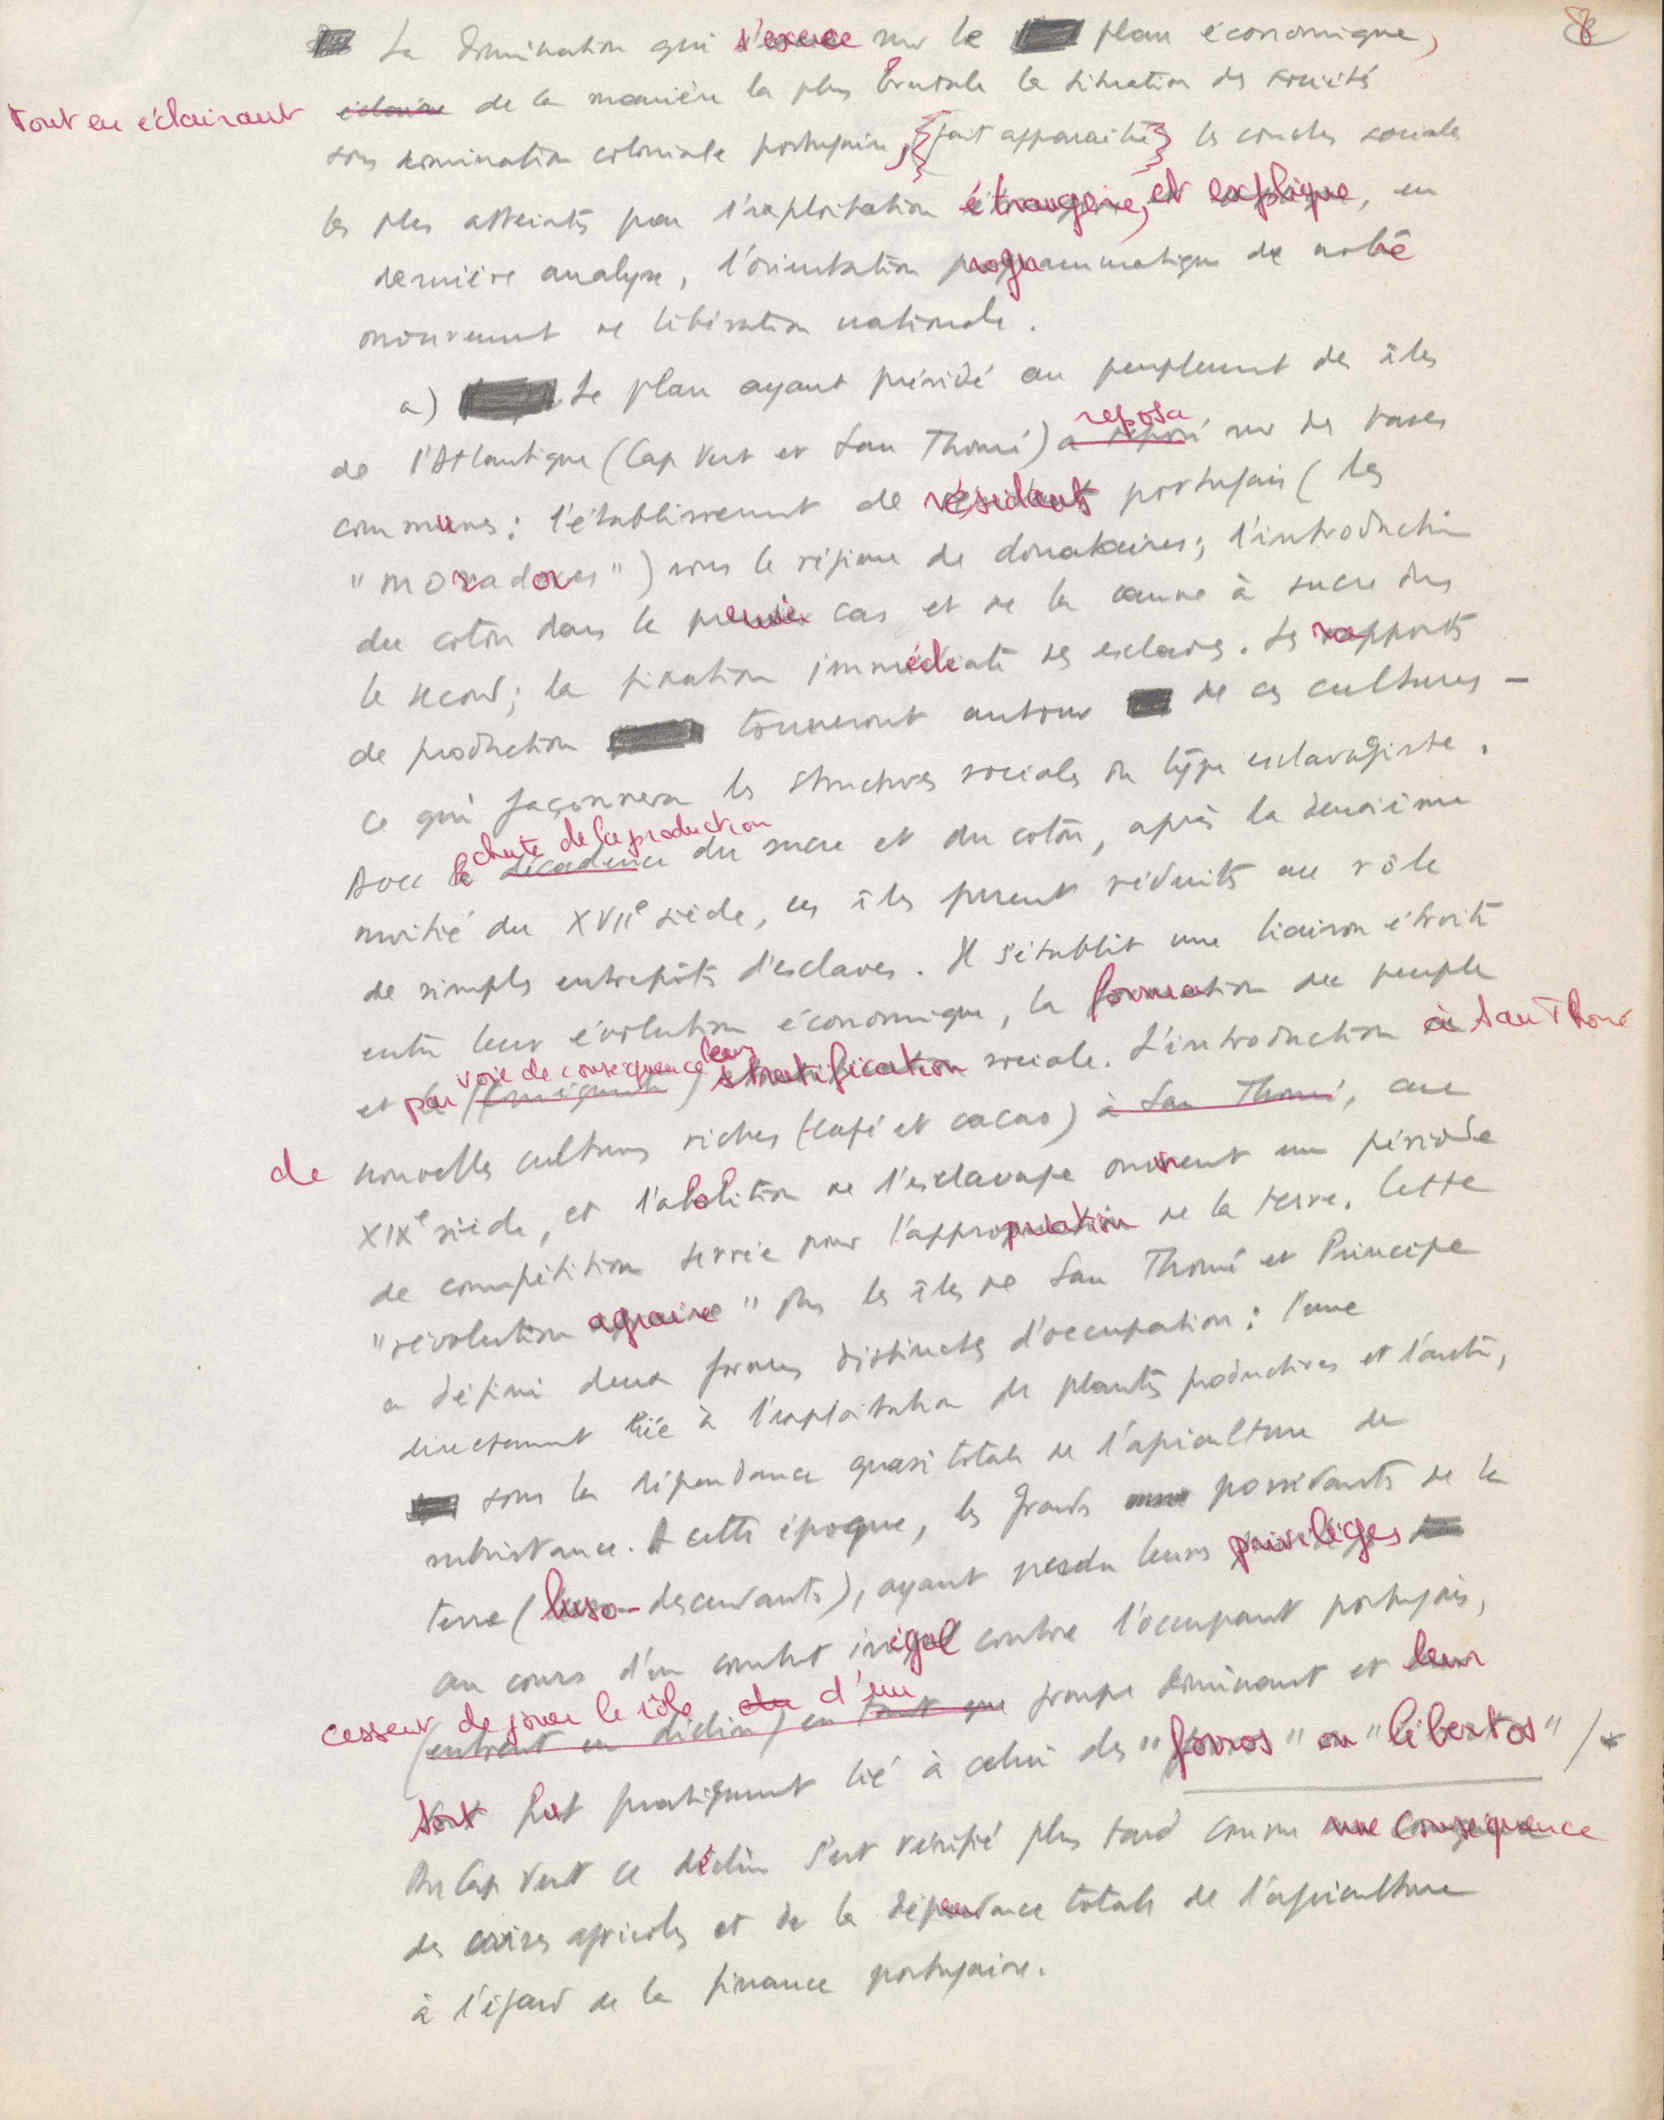 8
La domination qui s'exerce sur le plan économique,
tout en éclairant éclaire de la manière la plus brutale la situation des sociétés
sous domination coloniale portugaise, {fait apparaître} les couches sociales
les plus atteintes par l'exploitation étrangère, et explique, en
dernière analyse, l'orientation programmatique de notre
mouvement de libération nationale.
a) Le plan ayant présidé au peuplement des îles
reposa
de l'Atlantique (Cap Vert et San Thomé) a reposé sur des bases
communes: l'établissement de résidants portugais (les
"moradores") sous le régime de donataires; l'introduction
du coton dans le premier cas et de la canne à sucre dans
le second; la fixation immédiate des esclaves. Les rapports
de production tourneront autour de ces cultures —
ce qui façonnera les structures sociales du type esclavagiste.
chute de la production
Avec la décadence du sucre et du coton, après la deuxième
moitié du XVIIe siècle, ces îles furent réduites au rôle
de simples entrepôts d'esclaves. Il s'établit une liaison étroite
entre leur évolution économique, la formation du peuple
voie de conséquence leur
et par (conséquente) stratification sociale. L'introduction à San Thomé
de nouvelles cultures riches (café et cacao) à San Thomé, au
XIXe siècle, et l'abolition de l'esclavage ouvrent une période
de compétition serrée pour l'appropriation de la terre. Cette
"révolution agraire" dans les îles de San Thomé et Principe
a défini deux formes distinctes d'occupation: l'une
directement liée à l'exploitation des plantes productives et l'autre,
sous la dépendance quasi totale de l'agriculture de
subsistance. A cette époque, les grands possédants de la
terre (luso-descendants), ayant perdu leurs privilèges
au cours d'un combat inégal contre l'occupant portugais,
cessent de jouer le rôle du d'un
(entrent en déclin) en tant que groupe dominant et leur
sort fut pratiquement lié à celui des "forros" ou "libertos" /*
Au Cap Vert ce déclin s'est vérifié plus tard comme une conséquence
des crises agricoles et de la dépendance totale de l'agriculture
à l'égard de la finance portugaise.